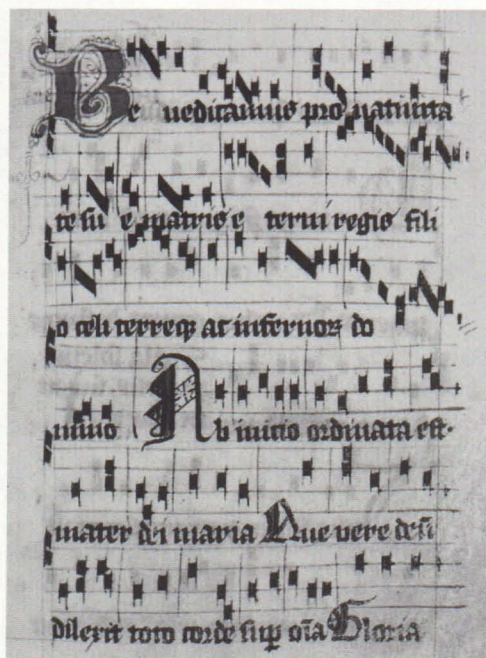 Be nedicamus pro natiuita
te su e matris e terni regis fili
o celi terreqꝫ ac infernoꝝ do
mino Ab inicio ordinata est·
mater dei maria Que vere deū
dilexit toto corde suꝑ oīa Gloria